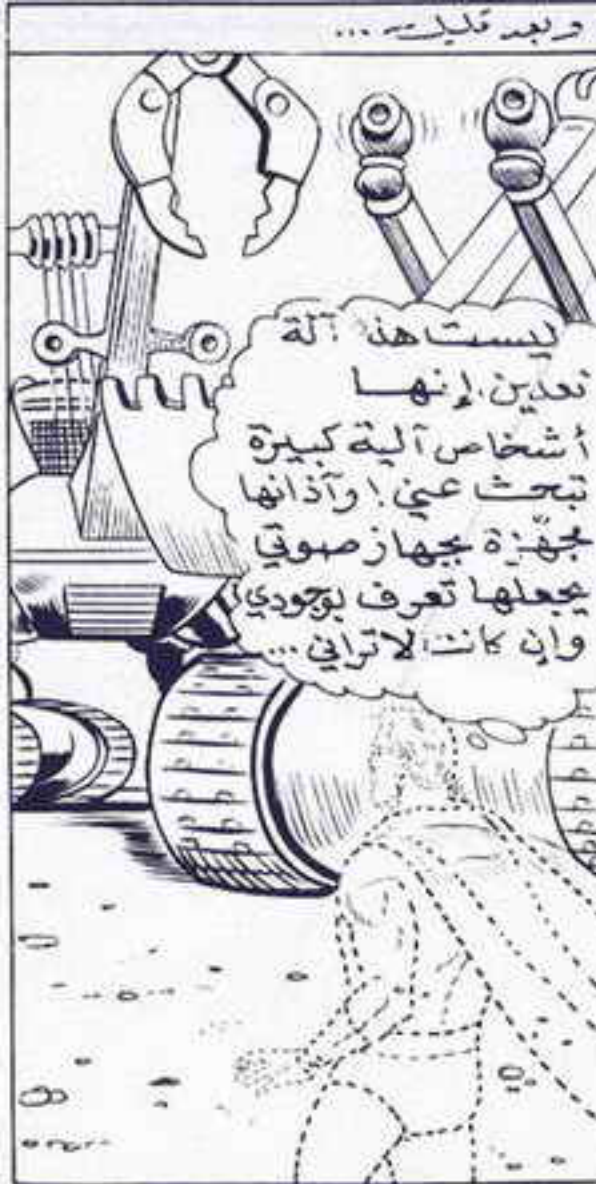 وبعد قليل ...
ليست هذه آلة
تعدين، إنها
أشخاص آلية كبيرة
تبحث عني! وآذانها
مجهّزة بجهاز صوتي
يجعلها تعرف بوجودي
وإن كانت لا تراني ...